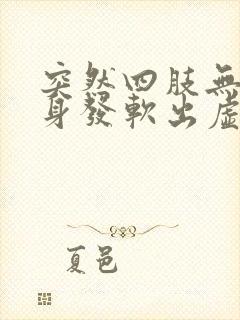 突然四肢無
身發軟出虛
夏邑